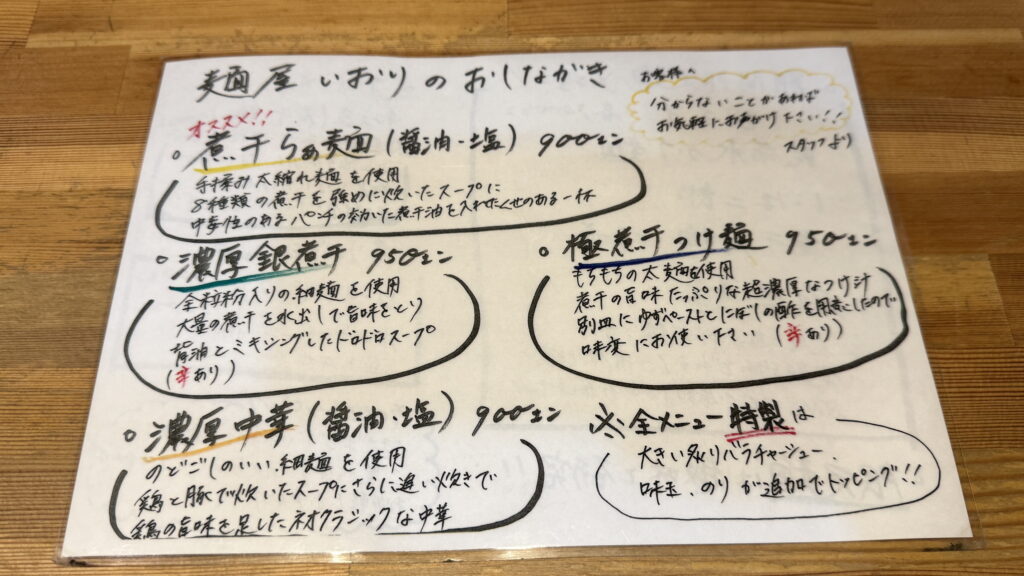 麺屋 いおりのおしながき
お客様へ
分からないことがあれば
お気軽にお声がけ下さい!!
スタッフより
オススメ!!
。煮干らぁ麺(醤油・塩) 900エン
手揉み太縮れ麺を使用
8種類の煮干を強めに炊いたスープに
中毒性のあるパンチの効いた煮干油を入れたくせのある一杯
。濃厚銀煮干 950エン
全粒粉入りの細麺を使用
大量の煮干を水出しで旨味をとり
背油とミキシングしたドロドロスープ
(辛あり)
。極煮干つけ麺 950エン
もちもちの太麺を使用
煮干の旨味たっぷりな超濃厚なつけ汁
別皿にゆずペーストとにぼしの酢を用意したので
味変にお使い下さい (辛あり)
。濃厚中華(醤油・塩) 900エン
のどごしのいい細麺を使用
鶏と豚で炊いたスープにさらに追い炊きで
鶏の旨味を足したネオクラシックな中華
※全メニュー特製は
大きい炙りバラチャーシュー、
味玉、のりが追加でトッピング!!